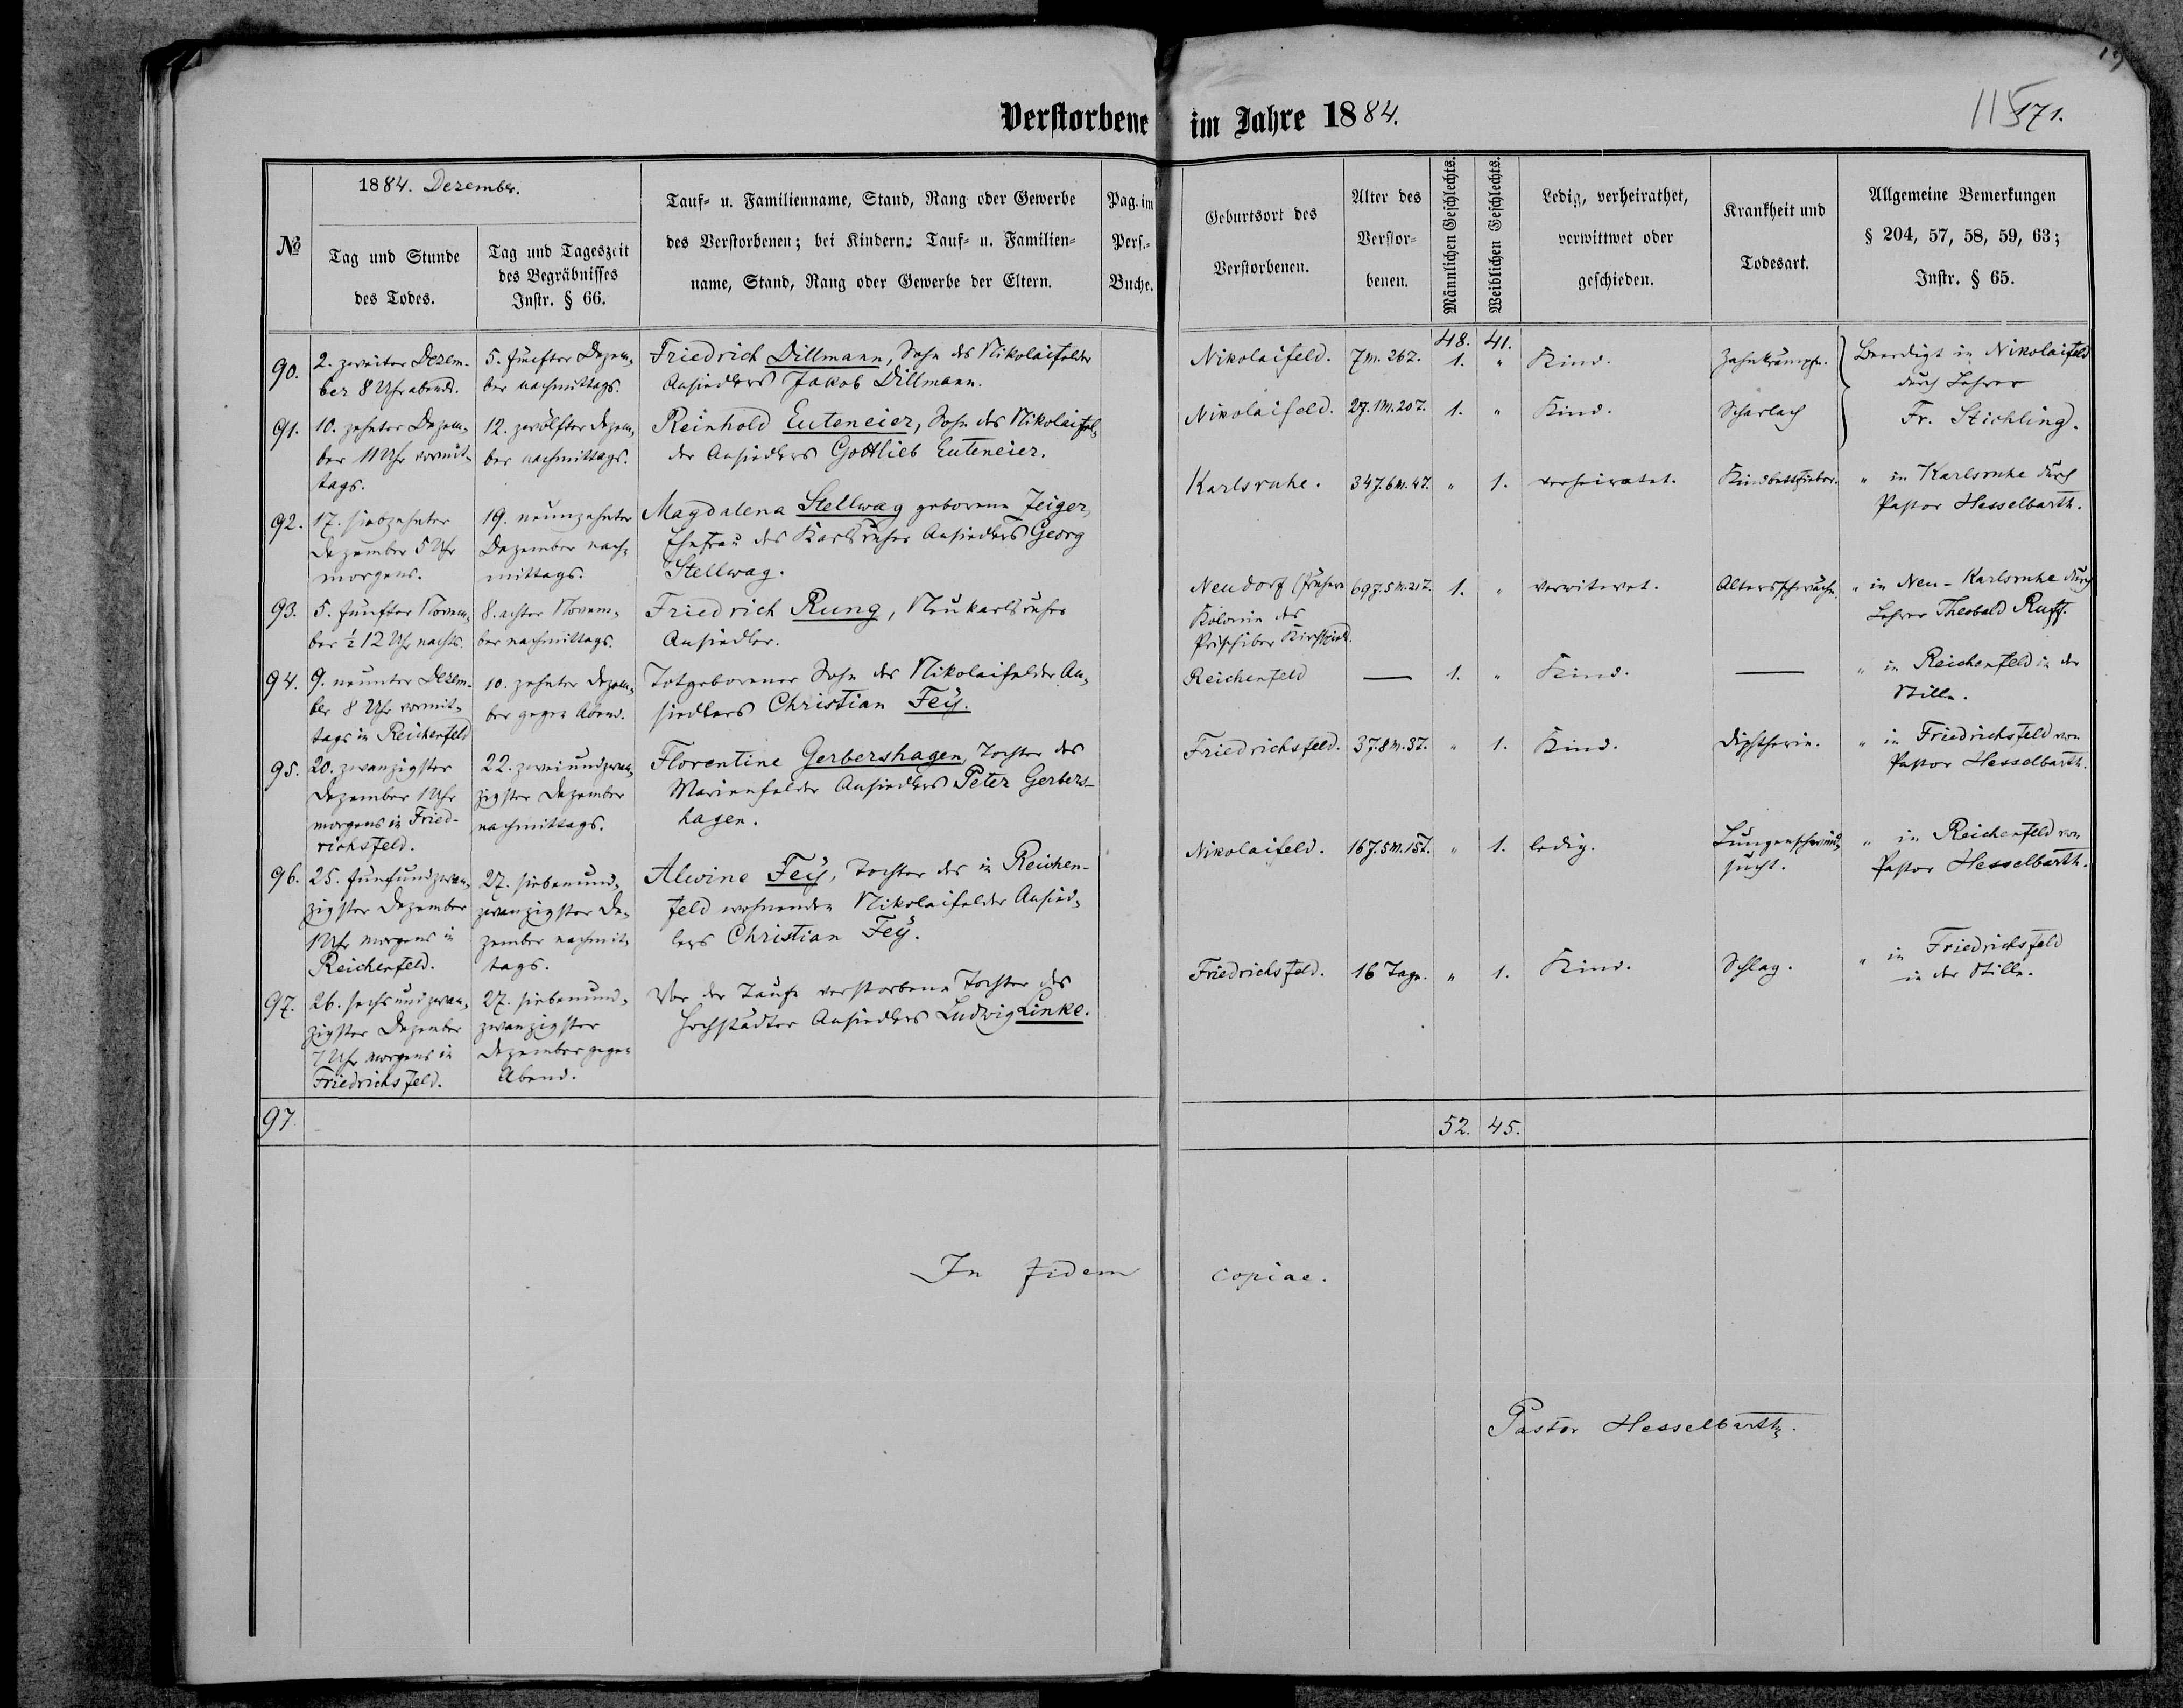 Verstorbene im Jahre 1884.
115 171.
19
№
1884. Dezember.
Tag und Stunde
des Todes.
Tag und Tageszeit
des Begräbnisses
Instr. § 66.
Tauf- u. Familienname, Stand, Rang oder Gewerbe
des Verstorbenen; bei Kindern: Tauf- u. Familien-
name, Stand, Rang oder Gewerbe der Eltern.
Pag. im
Pers.-
Buche.
Geburtsort des
Verstorbenen.
Alter des
Verstor-
benen.
Männlichen Geschlechts.
Weiblichen Geschlechts.
Ledig, verheirathet,
verwittwet oder
geschieden.
Krankheit und
Todesart.
Allgemeine Bemerkungen
§ 204, 57, 58, 59, 63;
Instr. § 65.
48. 41.
90.
2. zweiter Dezem-
ber 8 Uhr abends.
5. fünfter Dezem-
ber nachmittags.
Friedrich Dillmann, Sohn des Nikolaifelder
Ansiedlers Jakob Dillmann.
Nikolaifeld.
7 M. 26 T.
1. "
Kind.
Zahnkrämpfe.
Beerdigt in Nikolaifeld
durch Lehrer
Fr. Stichling.
91.
10. zehnter Dezem-
ber 11 Uhr vormit-
tags.
12. zwölfter Dezem-
ber nachmittags.
Reinhold Euteneier, Sohn des Nikolaifel-
der Ansiedlers Gottlieb Euteneier.
Nikolaifeld.
2 J. 1 M. 20 T.
1. "
Kind.
Scharlach
92.
17. siebzehnter
Dezember 5 Uhr
morgens.
19. neunzehnter
Dezember nach-
mittags.
Magdalena Stellwag geborene Zeiger,
Ehefrau des Karlsruher Ansiedlers Georg
Stellwag.
Karlsruhe.
34 J. 6 M. 4 T.
" 1.
verheiratet.
Kindbettfieber.
" in Karlsruhe durch
Pastor Hesselbarth.
93.
5. fünfter Novem-
ber ½ 12 Uhr nachts.
8. achter Novem-
ber nachmittags.
Friedrich Rung, Neukarlsruher
Ansiedler.
Neudorf (frühere
Kolonie des
Prischiber Kirchspiels.
69 J. 5 M. 21 T.
1. "
verwitwet.
Altersschwäche.
" in Neu-Karlsruhe durch
Lehrer Theobald Ruff.
94.
9. neunter Dezem-
ber 8 Uhr vormit-
tags in Reichenfeld
10. zehnter Dezem-
ber gegen Abend.
Totgeborener Sohn des Nikolaifelder An-
siedlers Christian Fey.
Reichenfeld
—
1. "
Kind.
—
" in Reichenfeld in der
Stille.
95.
20. zwanzigster
Dezember 1 Uhr
morgens in Fried-
richsfeld.
22. zweiundzwan-
zigster Dezember
nachmittags.
Florentine Gerbershagen, Tochter des
Marienfelder Ansiedlers Peter Gerbers-
hagen.
Friedrichsfeld.
3 J. 8 M. 3 T.
" 1.
Kind.
Diphtherie.
" in Friedrichsfeld von
Pastor Hesselbarth.
96.
25. fünfundzwan-
zigster Dezember
1 Uhr morgens in
Reichenfeld.
27. siebenund-
zwanzigster De-
zember nachmit-
tags.
Alwine Fey, Tochter des in Reichen-
feld wohnenden Nikolaifelder Ansied-
lers Christian Fey.
Nikolaifeld.
16 J. 5 M. 15 T.
" 1.
ledig.
Lungenschwind-
sucht.
" in Reichenfeld von
Pastor Hesselbarth.
97.
26. sechsundzwan-
zigster Dezember
7 Uhr morgens in
Friedrichsfeld.
27. siebenund-
zwanzigster
Dezember gegen
Abend.
Vor der Taufe verstorbene Tochter des
Hochstädter Ansiedlers Ludwig Linke.
Friedrichsfeld.
16 Tage.
" 1.
Kind.
Schlag.
" in Friedrichsfeld
in der Stille.
97.
52. 45.
In fidem copiae.
Pastor Hesselbarth.